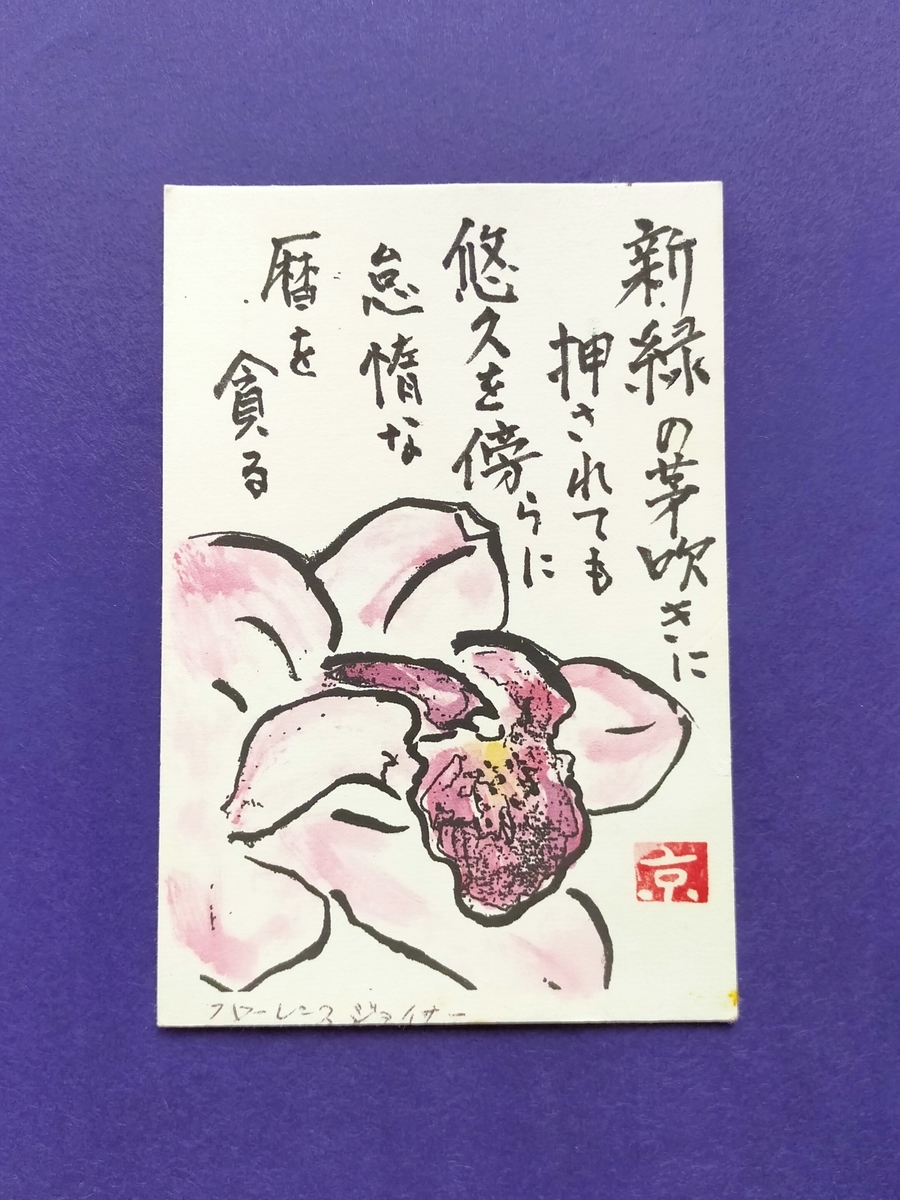 新緑の芽吹きに
押されても
悠久を傍らに
怠惰な
暦を
貪る
京
フローレンス ジョイナー